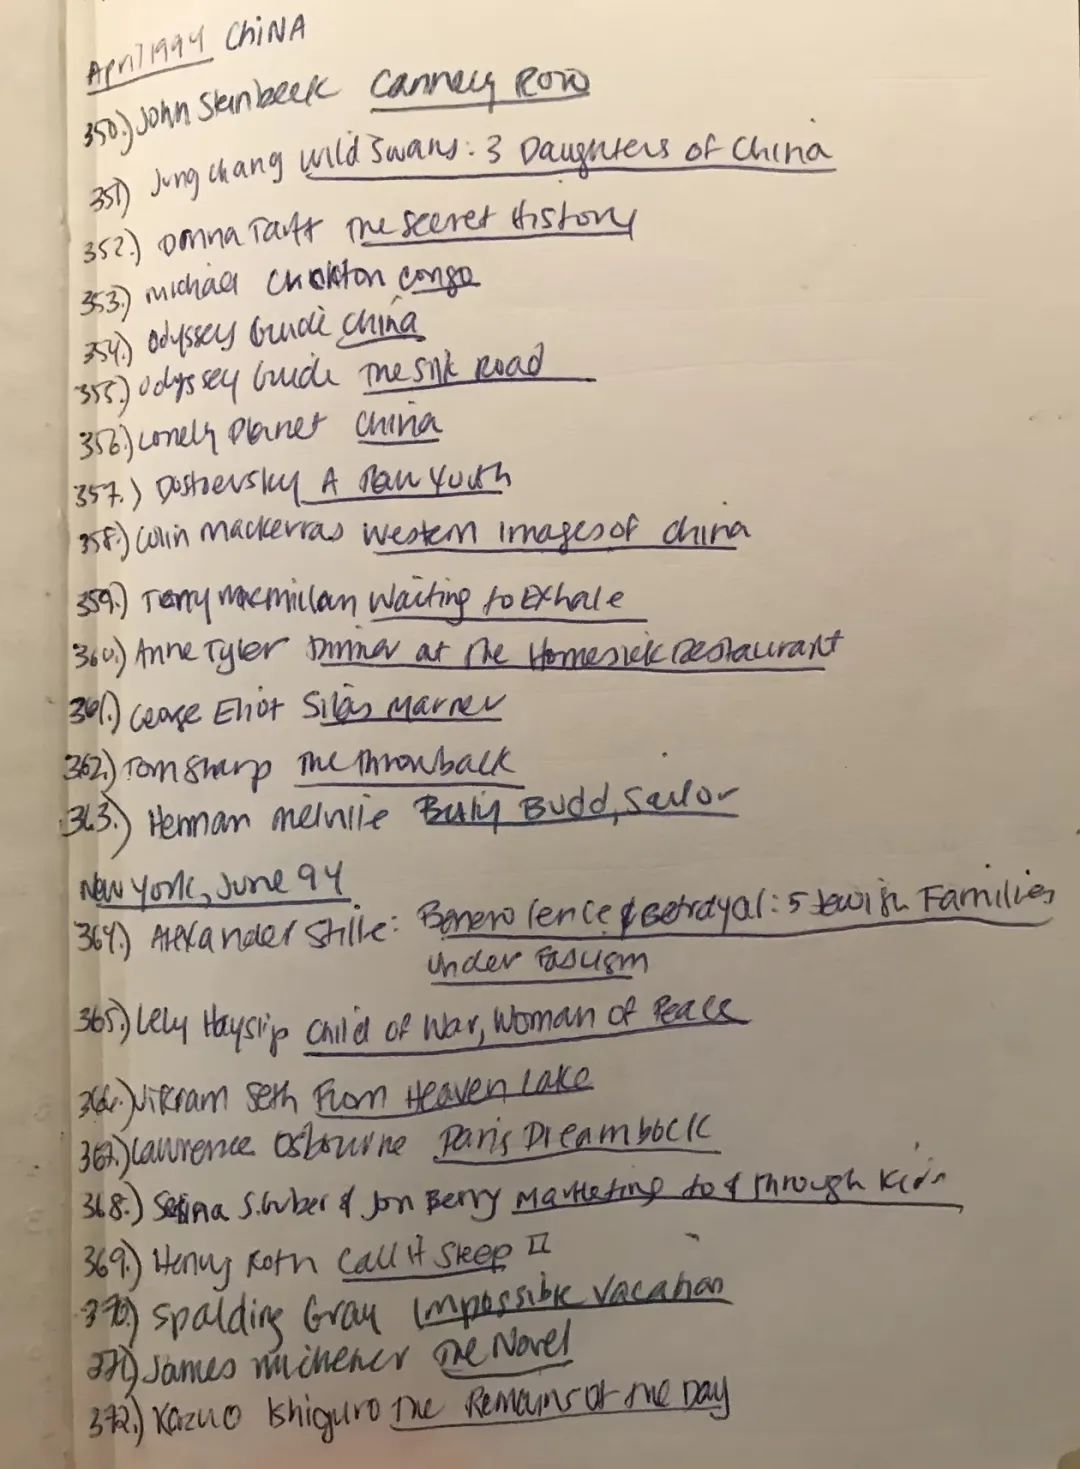 April 1994 China
350.) John Steinbeck Cannery Row
351) Jung Chang Wild Swans: 3 Daughters of China
352.) Donna Tartt The Secret History
353.) Michael Crichton Congo
354.) Odyssey Guide China
355.) Odyssey Guide The Silk Road
356.) Lonely Planet China
357.) Dostoevsky A Raw Youth
358.) Colin Mackerras Western Images of China
359.) Terry Macmillan Waiting to Exhale
360.) Anne Tyler Dinner at the Homesick Restaurant
361.) George Eliot Silas Marner
362.) Tom Sharp The Throwback
363.) Herman Melville Billy Budd, Sailor
New York, June 94
364.) Alexander Stille: Benevolence & Betrayal: 5 Jewish Families
under Fascism
365.) Lely Hayslip Child of War, Woman of Peace
366.) Vikram Seth From Heaven Lake
367.) Lawrence Osbourne Paris Dreambook
368.) Selina S. Guber & Jon Berry Marketing to & Through Kids
369.) Henry Roth Call It Sleep II
370.) Spalding Gray Impossible Vacation
371.) James Michener The Novel
372.) Kazuo Ishiguro The Remains of the Day